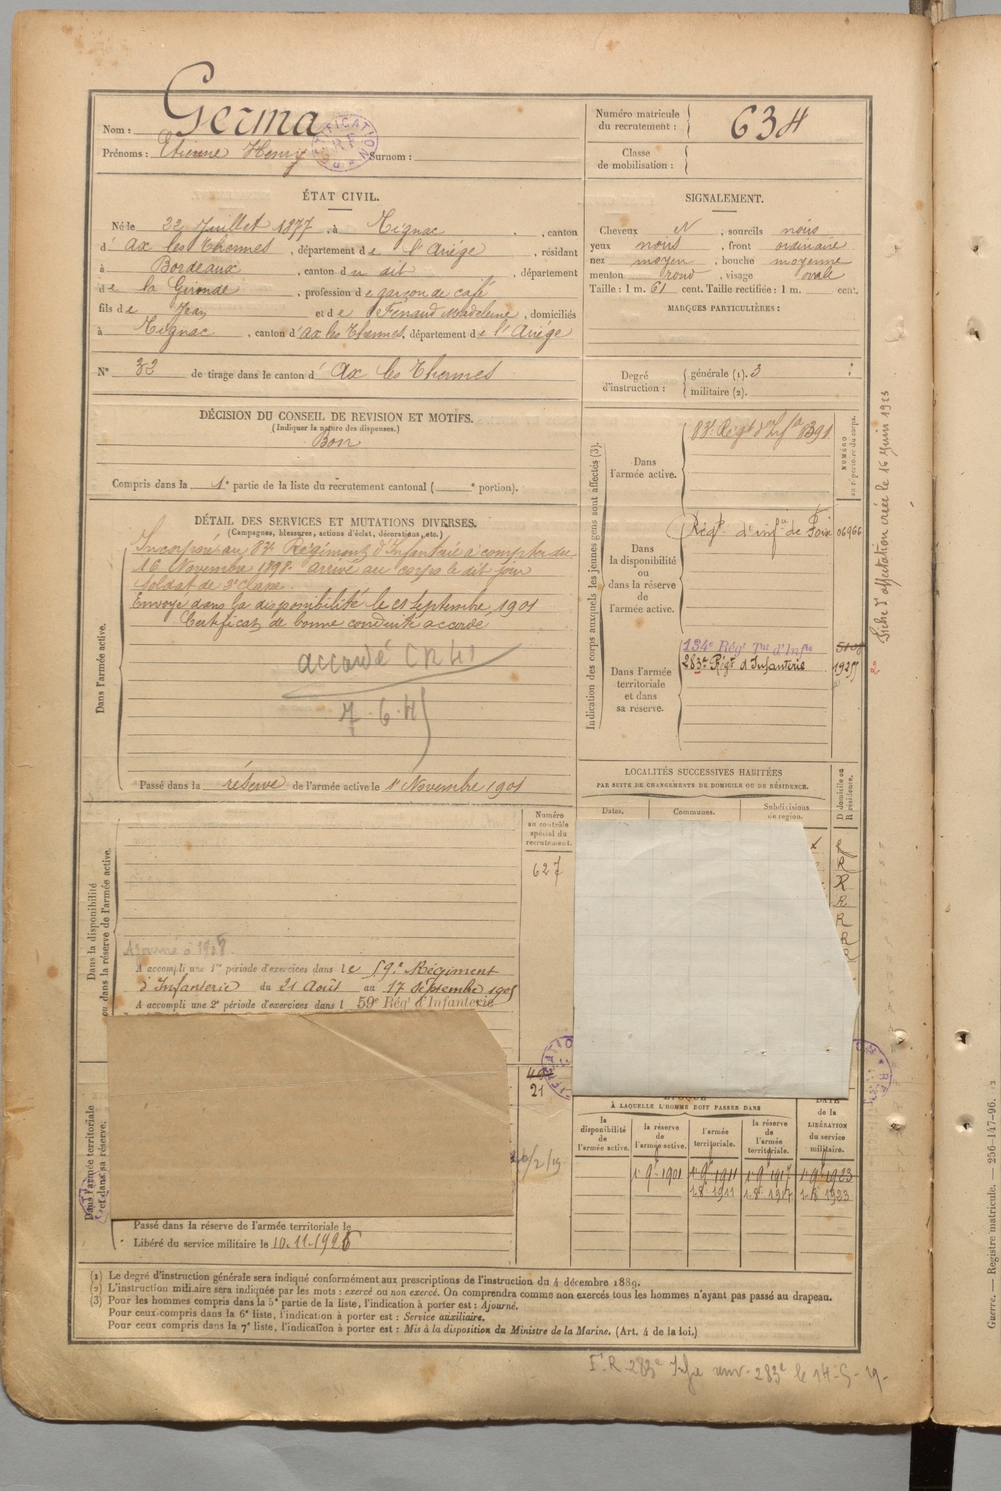 Nom : Germa
Prénoms : Etienne Henry Surnom :
Numéro matricule du recrutement : 634
Classe de mobilisation :
ÉTAT CIVIL.
Né le 22 Juillet 1877, à Tignac, canton
d' Ax les Thermes, département de l'Ariège, résidant
à Bordeaux, canton du dit, département
de la Gironde, profession de garçon de café
fils de Jean et de Madeleine, domiciliés
à Tignac, canton d'Ax les Thermes, département de l'Ariège
N° 32 de tirage dans le canton d' Ax les Thermes
SIGNALEMENT.
Cheveux N, sourcils noirs
yeux noirs, front ordinaire
nez moyen, bouche moyenne
menton rond, visage ovale
Taille : 1 m. 61 cent. Taille rectifiée : 1 m. cent.
MARQUES PARTICULIÈRES :
Degré d'instruction :
générale (1). 3
militaire (2).
DÉCISION DU CONSEIL DE REVISION ET MOTIFS.
(Indiquer la nature des dispenses.)
Bon
Compris dans la 1e partie de la liste du recrutement cantonal ( e portion).
DÉTAIL DES SERVICES ET MUTATIONS DIVERSES.
(Campagnes, blessures, actions d'éclat, décorations, etc.)
Dans l'armée active.
Incorporé au 83e Régiment d'Infanterie à compter du
16 Novembre 1898. Arrivé au corps le dit jour
Soldat de 2e classe.
Envoyé dans la disponibilité le 21 Septembre 1901
Certificat de bonne conduite accordé
accordé
Passé dans la réserve de l'armée active le 1er Novembre 1901
Indication des corps auxquels les jeunes gens sont affectés (3).
NUMÉRO au répertoire du corps.
Dans l'armée active.
83e Régt d'Infie
Dans la disponibilité ou dans la réserve de l'armée active.
Régt d'infie de Foix 06966
Dans l'armée territoriale et dans sa réserve.
134e Régt Tal d'Infie
283e Régt d'Infanterie
Fiche d'affectation créée le 16 Juin 1923
LOCALITÉS SUCCESSIVES HABITÉES
PAR SUITE DE CHANGEMENTS DE DOMICILE OU DE RÉSIDENCE.
D domicile ou R résidence.
Dates. Communes. Subdivisions de région.
R
R
R
R
R
R
Numéro au contrôle spécial du recrutement.
627
Dans la disponibilité ou dans la réserve de l'armée active.
A accompli une 1re période d'exercices dans le 59e Régiment
d'Infanterie du 21 Août au 17 Septembre 1905
A accompli une 2e période d'exercices dans l 59e Régt d'Infanterie
21
Dans l'armée territoriale et dans sa réserve.
Passé dans la réserve de l'armée territoriale le
Libéré du service militaire le 10.11.1926
ÉPOQUE
À LAQUELLE L'HOMME DOIT PASSER DANS
la disponibilité de l'armée active.
la réserve de l'armée active.
l'armée territoriale.
la réserve de l'armée territoriale.
DATE de la LIBÉRATION du service militaire.
1. 9bre 1901 1. 9bre 1911 1. 9bre 1917 1. 9bre 1923
1.8bre 1911 1.8bre 1917 1.8bre 1923
(1) Le degré d'instruction générale sera indiqué conformément aux prescriptions de l'instruction du 4 décembre 1889.
(2) L'instruction militaire sera indiquée par les mots : exercé ou non exercé. On comprendra comme non exercés tous les hommes n'ayant pas passé au drapeau.
(3) Pour les hommes compris dans la 5e partie de la liste, l'indication à porter est : Ajourné.
Pour ceux compris dans la 6e liste, l'indication à porter est : Service auxiliaire.
Pour ceux compris dans la 7e liste, l'indication à porter est : Mis à la disposition du Ministre de la Marine. (Art. 4 de la loi.)
Guerre. — Registre matricule. — 256-147-96.